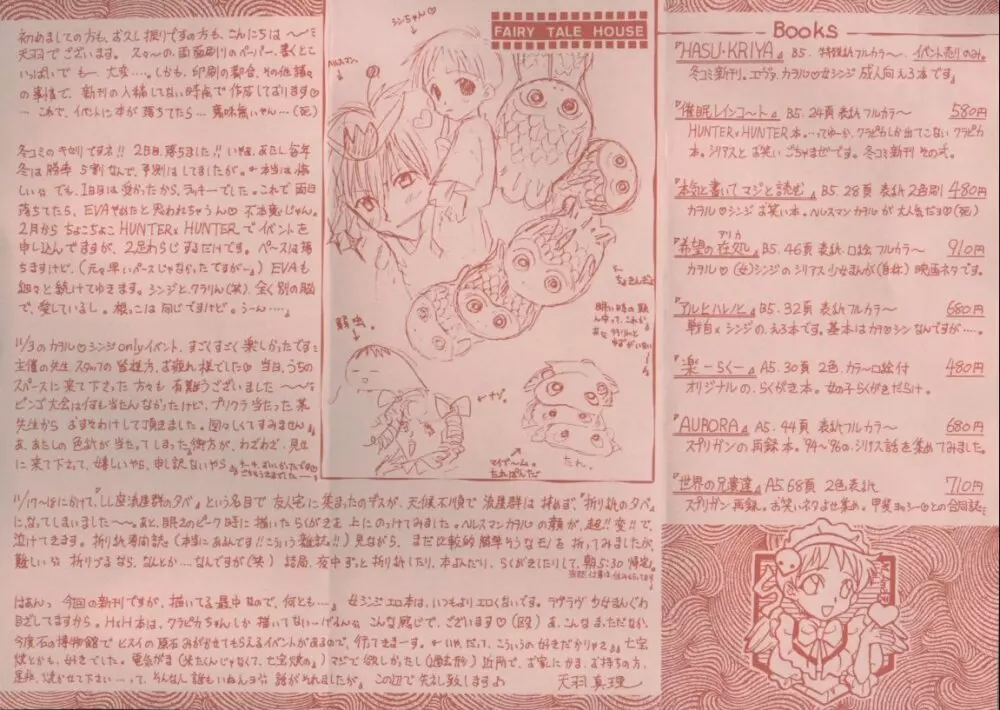 初めましての方も、お久し振りですの方も、こんにちは〜〜
天羽でございます。スゥ〜の、両面刷りのペーパー、書くとこ
いっぱいで もー 大変…。しかも、印刷の都合、その他諸々
の事情で、新刊の入稿してない時点で作成しております♡
… これで、イベントに本が落ちてたら… 意味無いやん…(死)
冬コミのキセツですネ!! 2日目、落ちました!! いやぁ、あたし毎年
冬は勝率 5割なんで、予測はしてましたが。←本当は悔
しい でも、1日目は受かったから、ラッキーでした。これで両日
落ちてたら、EVAやめたと思われちゃうん♡ 不本意じゃん。
2月から ちょこちょこ HUNTER×HUNTER でイベントを
申し込んでますが、2足わらじするだけです。ペースは落
ちますけど、(元々早いペースじゃなかったですがー。) EVAも
細々と続けてゆきます。シンジとクラりん(笑) 全く別の脳
で、愛しているし。根っこは同じですけど。うーん…。
11/3のカヲル♡シンジonlyイベント、すごくすごく楽しかったです
主催の先生、スタッフの皆様方、お疲れ様でした♡ 当日、うちの
スペースに来て下さった方々も 有難うございました〜〜
ビンゴ大会は何も当たんなかったけど、プリクラ当たった某
先生から おすそわけして頂きました。図々しくてすみません
あ、あたしの色紙が当たってしまった御方が、わざわざ、見せ
に来て下さって、嬉しいやら、申し訳ないやら
11/17〜18にかけて、「しし座流星群の夕べ」という名目で 友人宅に集まったのデスが、天候不順で 流星群は拝めず、「折り紙の夕べ」
になってしまいました〜〜。あと、眠さのピーク時に描いたらくがきを 上にのっけてみました。ヘルスマンカヲルの顔が、超!!変!!で、
泣けてきます。折り紙専門誌(本当にあるんです!!こういう雑誌!!)見ながら、まだ比較的簡単そうなモノを 折ってみましたが、
難しい 折りづるなら、なんとか…なんですが(笑) 結局、夜中ずっと折り紙したり、本よんだり、らくがきしたりして、朝5:30 帰宅。
はあんっ 今回の新刊ですが、描いてる最中なので、何とも…。 女シンジエロ本は、いつもよりエロくないです。ラブラヴ 少女まんがわ
めざしてますから。H×H本は、クラピカちゃんしか 描いてない〜 こんな感じで、ございます♡(殴) あ、こんなまっただなか、
今度石の博物館で ヒスイの原石 みがかせてもらえるイベントがあるので、行ってきまーす。←いやだって、こういうの好きだかりゃさ 七宝
焼とかも、好きでした。電気がま(米たくんじゃなくて、七宝焼の) マジで欲しかったし(過去形) 近所で、お家にかま、お持ちの方、
是非、焼かせて下さい…って、そんなん 誰もいねんヨ 話がそれましたが、この辺で 失礼致します♪ 天羽真理
シンちゃん♡
ヘルスマン
FAIRY TALE HOUSE
たれ。
マイブーム。
たれぱんだ
Books
『HASU・KRIYA』 B5. 特殊紙フルカラ〜 イベント売りのみ。
冬コミ新刊。エヴァ、カヲル♡女シンジ 成人向えろ本です
『催眠レインコート』 B5. 24頁 表紙フルカラ〜 580円
HUNTER×HUNTER本。…ってゆーか、クラピカしか出てこない クラピカ
本。シリアスと お笑い ごちゃまぜです。冬コミ新刊 その弐。
『本気と書いて マジと読む』 B5. 28頁 表紙 2色刷り 480円
カヲル♡シンジ お笑い本。ヘルスマンカヲル が 大人気だヨ♡(死)
『希望の在処』 B5. 46頁 表紙・口絵 フルカラ〜 910円
アリカ
カヲル♡(女)シンジの シリアス 少女まんが(自称) 映画ネタです。
『アルヒハレノヒ』 B5. 32頁 表紙フルカラ〜 680円
戦自×シンジの、えろ本です。基本はカヲ♡シン なんですが…。
『楽 −らく−』 A5. 30頁 2色. カラ〜口絵付 480円
オリジナルの、らくがき本。女の子らくがきだらけ。
『AURORA』 A5. 44頁 表紙フルカラ〜 680円
スプリガンの 再録本。94〜96の、シリアス話を集めてみました。
『世界の兄貴達』 A5 68頁 2色表紙 710円
スプリガン 再録。お笑いネタよせ集め。甲斐キョウコーとの合同誌